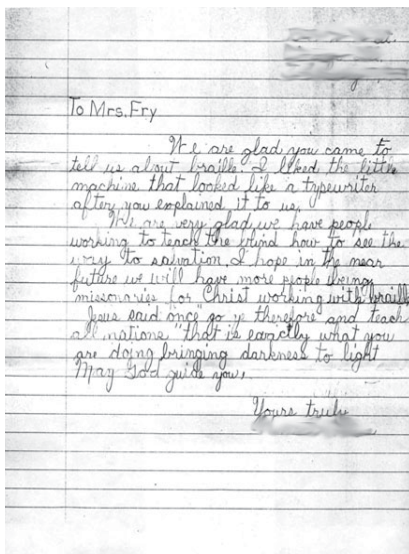 To Mrs. Fry
We are glad you came to
tell us about braille. I liked the little
machine that looked like a typewriter
after you explained it to us.
We are very glad we have people
working to teach the blind how to see the
way to salvation. I hope in the near
future we will have more people being
missionaries for Christ working with braille
Jesus said once "go ye therefore and teach
all nations" that is exactly what you
are doing bringing darkness to light
May God guide you,
Yours truly